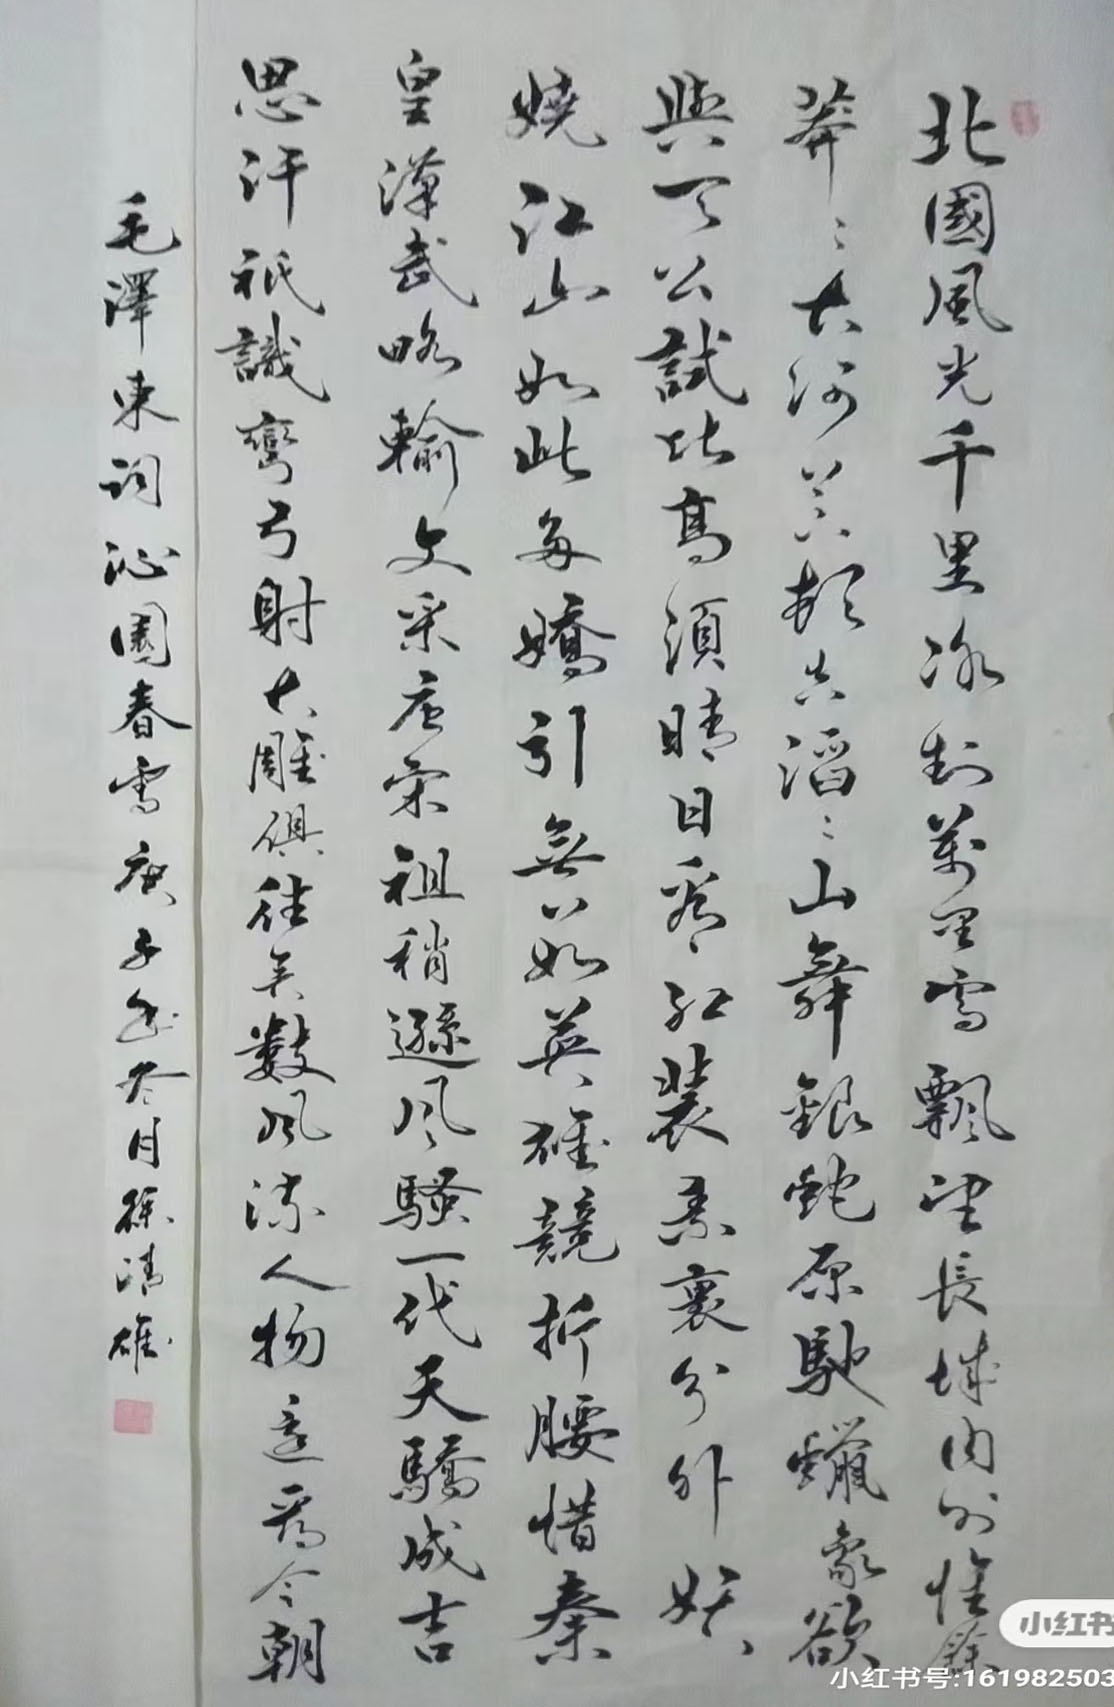 北國風光千里冰封萬里雪飄望長城内外惟餘
莽〻大河上下頓失滔〻山舞銀蛇原馳蠟象欲
與天公試比高須晴日看紅裝素裹分外妖
嬈江山如此多嬌引無數英雄競折腰惜秦
皇漢武略輸文采唐宋祖稍遜風騷一代天驕成吉
思汗祇識彎弓射大雕俱往矣數風流人物還看今朝
毛澤東詞沁園春雪庚子年冬月徐清雄
小红书
小红书号:161982503